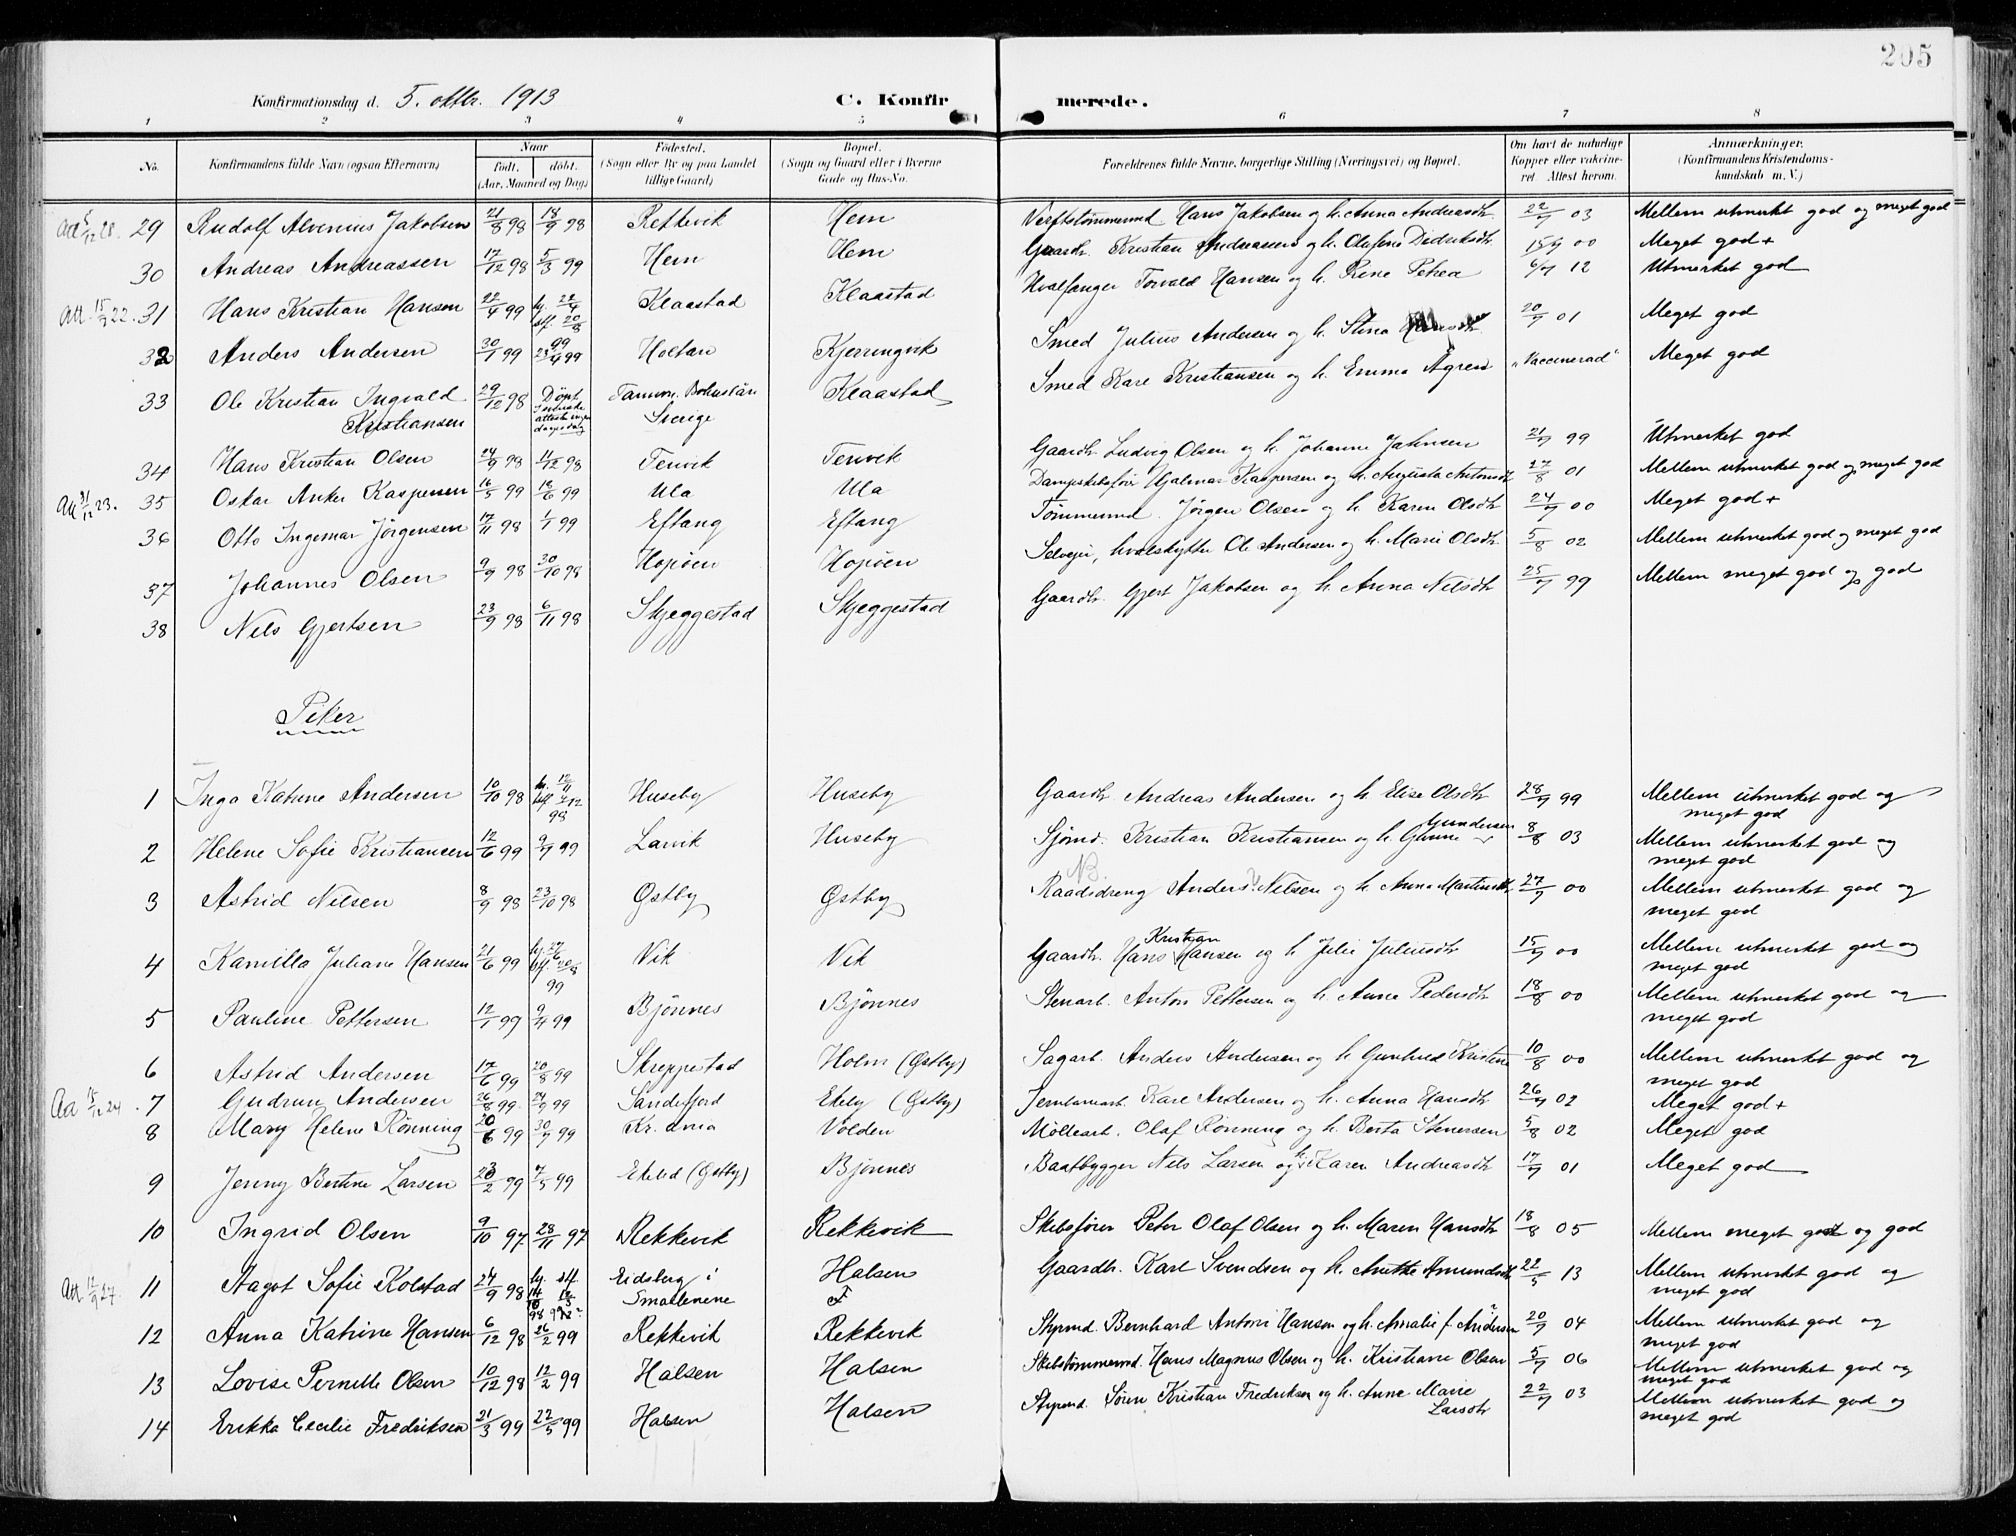 205
Konfirmationsdag d. 5. oktbr. 1913 C. Konfirmerede.
1 2 3 4 5 6 7 8
No. Konfirmandens fulde Navn (ogsaa Efternavn) Naar født. døbt. (Aar, Maaned og Dag) Fødested. (Sogn eller By og paa Landet tillige Gaard) Bopæl. (Sogn og Gaard eller i Byerne Gade og Hus-No. Forældrenes fulde Navne, borgerlige Stilling (Næringsvei) og Bopæl. Om havt de naturlige Kopper eller vakcineret. Attest herom. Anmærkninger. (Konfirmandens Kristendomskundskab m. V.)
Att 5/12 28. 29 Rudolf Alvenius Jakobsen 21/8 98 18/9 98 Rekkevik Hem Verftstømmermd. Hans Jakobsen og h. Anna Andreasdtr. 22/9 03 Mellem utmerket god og meget god
30 Andreas Andreassen 17/12 98 5/3 99 Hem Hem Gaardbr. Kristian Andreassen og h. Olufine Didriksdtr 15/9 00 Meget god +
Att. 15/9 22. 31 Hans Kristian Hansen 22/4 99 hj. 22/4 stf. 20/8 99 Klaastad Klaastad Hvalfanger Torvald Hansen og h. Rine Petrea 6/7 12 Utmerket god
32 Anders Andersen 30/1 99 23/4 99 Holtan Kjerringvik Smed Julius Andersen og h. Stina Hansdtr 20/9 01 Meget god
33 Ole Kristian Ingvald Kristiansen 29/12 98 Döpt Tanum. Bohuslän Sverige Klaastad Smed Karl Kristiansen og h. Emma Ågren "Vaccinerad" Meget god
34 Hans Kristian Olsen 24/9 98 11/12 98 Tenvik Tenvik Gaardbr. Ludvig Olsen og h. Johanne Jahnsen 21/9 99 Utmerket god
Att 31/12 23. 35 Oskar Anker Kaspersen 16/5 99 18/6 99 Ula Ula Dampskibsfører Hjalmar Kaspersen og h. Augusta Antonsdtr 27/8 01 Mellem utmerket god og meget god
36 Otto Ingemar Jörgensen 17/11 98 1/1 99 Eftang Eftang Tømmermd. Jørgen Olsen og h. Karen Olsdtr 24/9 00 Meget god +
37 Johannes Olsen 9/9 98 30/10 98 Hopöen Hopöen Selveier, hvalskytter Ole Andersen og h. Marie Olsdtr 5/8 02 Mellem utmerket god og meget god
38 Nils Gjertsen 23/9 98 6/11 98 Skjeggestad Skjeggestad Gaardbr. Gjert Jakobsen og h. Anna Nilsdtr 25/9 99 Mellem meget god og god
Piker
1 Inga Katrine Andersen 10/10 98 hj. 12/11 stf. 7/12 98 Huseby Huseby Gaardbr Andreas Andersen og h. Elise Olsdtr 28/9 99 Mellem utmerket god og meget god
2 Helene Sofie Kristiansen 12/6 99 9/7 99 Larvik Huseby Sjømd. Kristian Kristiansen og h. Gunne Gundersen 8/8 03 Mellem utmerket god og meget god
3 Astrid Nilsen 8/9 98 23/10 98 Østby Østby NB. Raadsdreng Anders Nilsen og h. Anna Martinsdtr 27/9 00 Mellem utmerket god og meget god
4 Kamilla Juliane Hansen 21/6 99 hj. 27/6 stf. 20/8 99 Vik Vik Gaardbr. Hans Kristian Hansen og h Julie Juliusdtr 15/9 00 Mellem utmerket god og meget god
5 Pauline Pettersen 12/1 99 9/4 99 Bjönnes Bjönnes Stenarb. Anton Pettersen og h. Anne Pedersdtr 18/8 00 Mellem utmerket god og meget god
6 Astrid Andersen 17/6 99 20/8 99 Skreppestad Holm (Østby) Sagarb. Anders Andersen og h. Gunhild Kristine 10/8 00 Mellem utmerket god og meget god
Att 15/12 24. 7 Gudrun Andersen 26/8 99. 24/9 99 Sandefjord Ekeby (Østby) Jernbanearb. Karl Andersen og h. Anna Hansdtr 26/9 02 Meget god +
8 Mary Helene Rönning 20/6 99 30/7 99 Kr.ania Volden Møllearb. Olaf Rönning og h. Berta Stenersen 5/8 02 Meget god
9 Jenny Bertine Larsen 23/2 99 7/5 99 Ekelid (Østby) Bjönnes Baatbygger Nils Larsen og h. Karen Andreasdtr 17/9 01 Meget god
10 Ingrid Olsen 9/10 97 28/11 97 Rekkevik Rekkevik Skibsfører Peter Olaf Olsen og h. Maren Hansdtr 18/8 05 Mellem meget godt og god
Att 12/9 27. 11 Aagot Sofie Kolstad 24/9 98 hj. stf. Eidsberg i Smaalenene Halsen F Gaardbr. Karl Svendsen og h. Anette Amundsdtr 22/5 13 Mellem utmerket god og meget god
12 Anna Katrine Hansen 6/12 98 26/2 99 Rekkevik Rekkevik Styrmd. Bernhard Anton Hansen og h. Amalie f. Andersen 20/9 04 Mellem utmerket god og meget god
13 Lovise Pernille Olsen 10/12 98 12/2 99 Halsen Halsen Skibstømmermd. Hans Magnus Olsen og h. Kristiane Olsen 5/9 06 Mellem utmerket god og meget god
14 Erikka Cecilie Fredriksen 21/3 99 22/5 99 Halsen Halsen Styrmd. Sören Kristian Fredriksen og h. Anne Marie Larsdtr 22/9 03 Mellem utmerket god og meget god